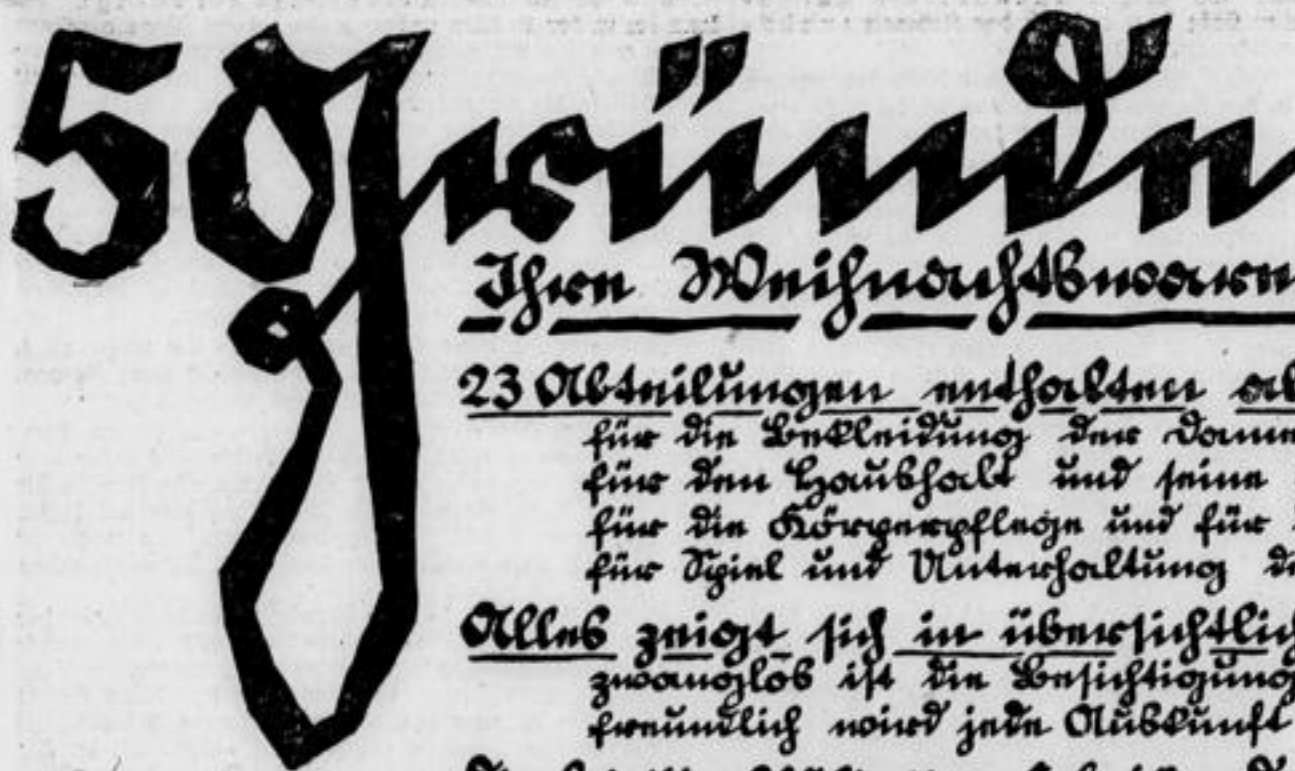 5 Gründe
Ihre Weihnachtsware
23 Abteilungen enthalten al
für die Bekleidung der Dame
für den Haushalt und seine
für die Körperpflege und für
für Spiel und Unterhaltung de
Alles zeigt sich in übersichtlich
zwanglos ist die Besichtigung
freundlich wird jede Auskunft